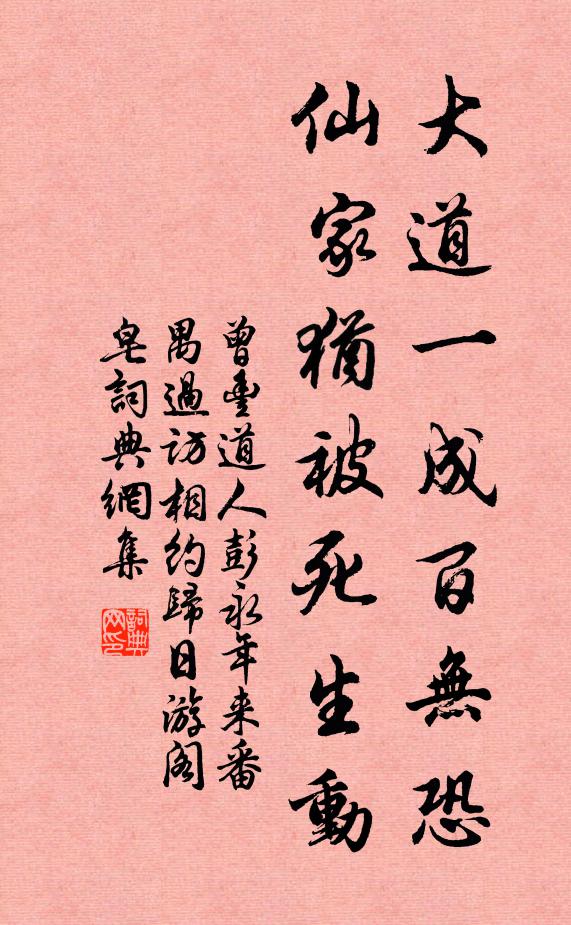 大道一成百無恐
仙家猶被死生動
曾豐道人彭永年来番
禺過訪相約歸日游閣
皂詞典網集
詞典
网印